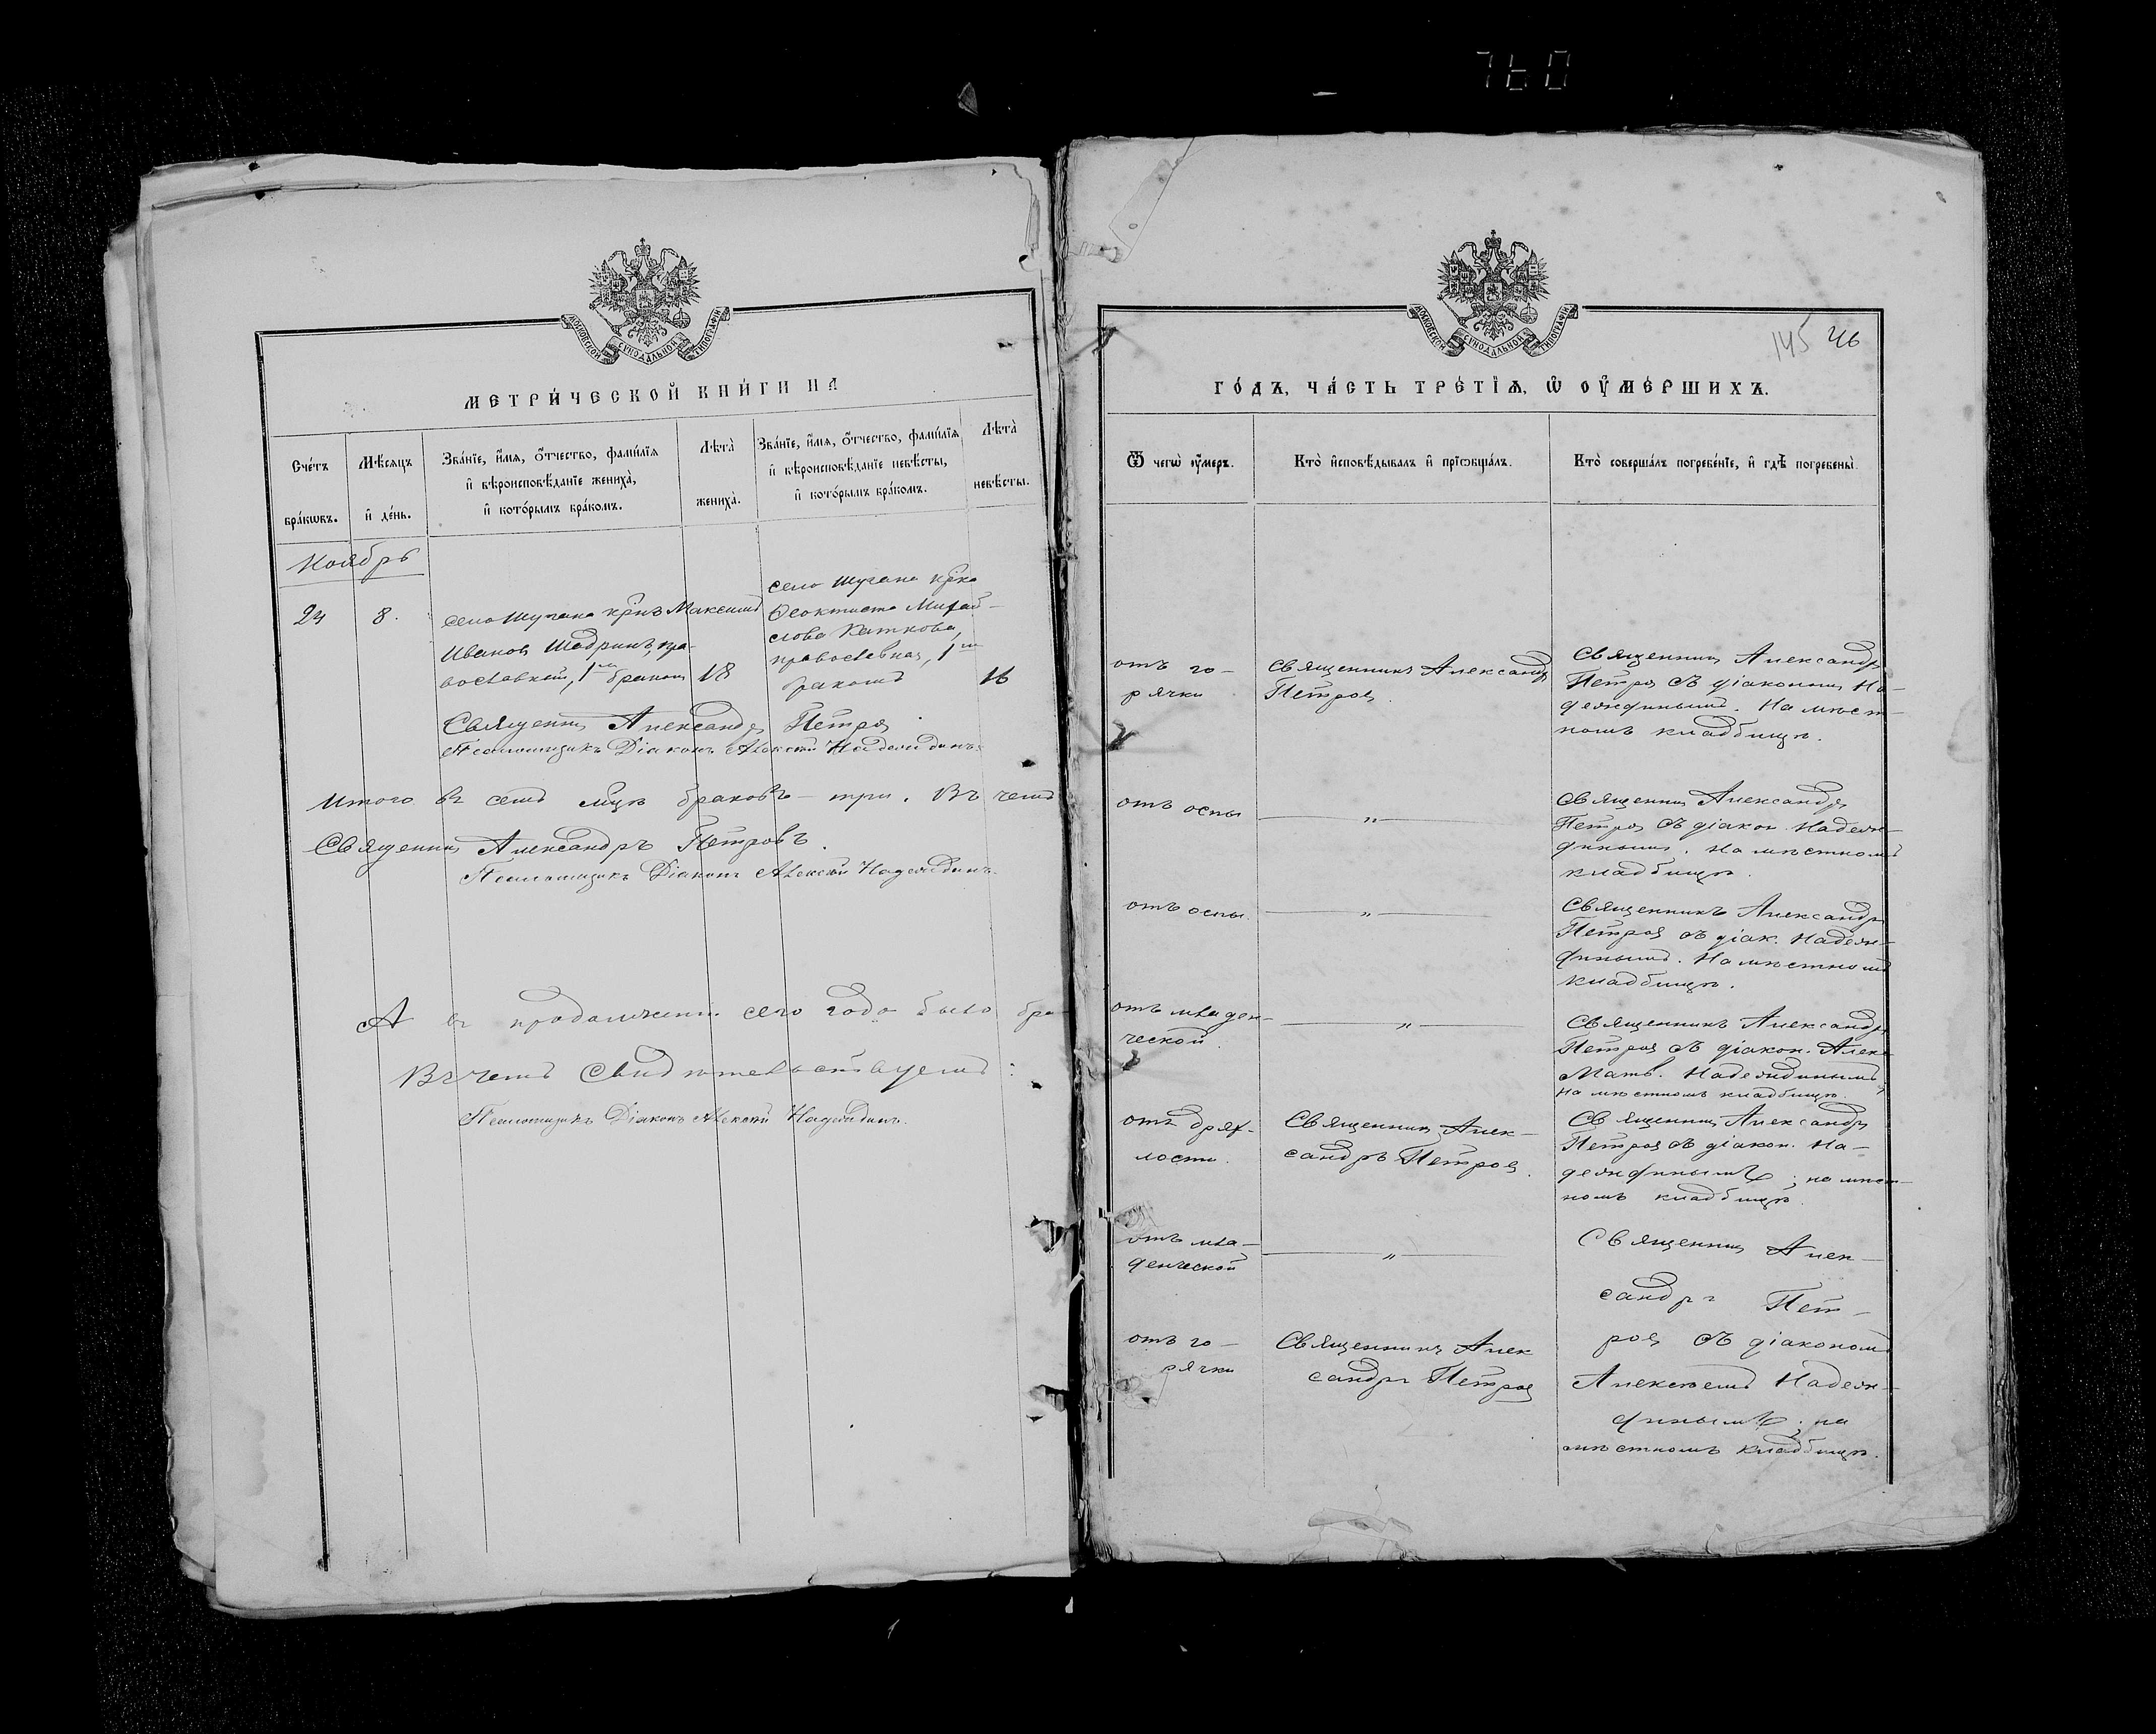 760
МОСКОВСКОЙ СУНОДАЛЬНОЙ ТИПОГРАФІИ
МЕТРИ́ЧЕСКОЙ КНИ́ГИ НА
Сче́тъ бра́кѡвъ.
Мѣ́сяцъ и҆ де́нь.
Зва́нїе, и҆́мѧ, ѻ҆́тчество, фами́лїѧ
и҆ вѣроисповѣ́данїе жениха̀,
и҆ кото́рымъ бра́комъ.
Лѣта̀ жениха̀.
Зва́нїе, и҆́мѧ, ѻ҆́тчество, фами́лїѧ
и҆ вѣроисповѣ́данїе невѣ́сты,
и҆ кото́рымъ бра́комъ.
Лѣта̀ невѣ́сты.
Ноябрь
24
8.
село Шугана крнъ Максимъ
Ивановъ Шадринъ, пра-
вославной, 1мъ бракомъ
18
село Шугана крка
Ѳеоктиста Михай-
лова Каткова,
православная, 1мъ
бракомъ
16
Священникъ Александръ Петровъ
Псаломщикъ Діаконъ Алексѣй Надеждинъ.
Итого въ семъ мцѣ браковъ — три. Въ чемъ
Священникъ Александръ Петровъ.
Псаломщикъ Діаконъ Алексѣй Надеждинъ.
А въ продолженіи сего года было бра
Въ чемъ свидѣтельствуемъ:
Псаломщикъ Діаконъ Алексѣй Надеждинъ.
МОСКОВСКОЙ СУНОДАЛЬНОЙ ТИПОГРАФІИ
145 46
ГО́ДЪ, ЧА́СТЬ ТРЕ́ТЇѦ, Ѡ҆ ОУ҆МЕ́РШИХЪ.
Ѿ чегѡ̀ ᲂу҆́меръ.
Кто̀ и҆сповѣ́дывалъ и҆ прїѡбща́лъ.
Кто̀ соверша́лъ погребе́нїе, и҆ гдѣ̀ погребены̀.
отъ го-
рячки
Священникъ Александръ
Петровъ.
Священникъ Александръ
Петровъ съ діакономъ На-
деждинымъ. На мѣст-
номъ кладбищѣ.
отъ оспы
"
Священникъ Александръ
Петровъ съ діакон. Надеж-
динымъ. На мѣстномъ
кладбищѣ.
отъ оспы.
"
Священникъ Александръ
Петровъ съ діак. Надеж-
динымъ. На мѣстномъ
кладбищѣ.
отъ младен-
ческой.
"
Священникъ Александръ
Петровъ съ діакон. Алек.
Матв. Надеждинымъ,
на мѣстномъ кладбищѣ.
отъ дрях-
лости.
Священникъ Алек-
сандръ Петровъ.
Священникъ Александръ
Петровъ съ діакон. На-
деждинымъ; на мѣст-
номъ кладбищѣ.
отъ мла-
денческой
"
Священникъ Алек-
сандръ Пет-
ровъ съ діакономъ
Алексѣемъ Надеж-
динымъ; на
мѣстномъ кладбищѣ.
отъ го-
рячки
Священникъ Алек
сандръ Петровъ